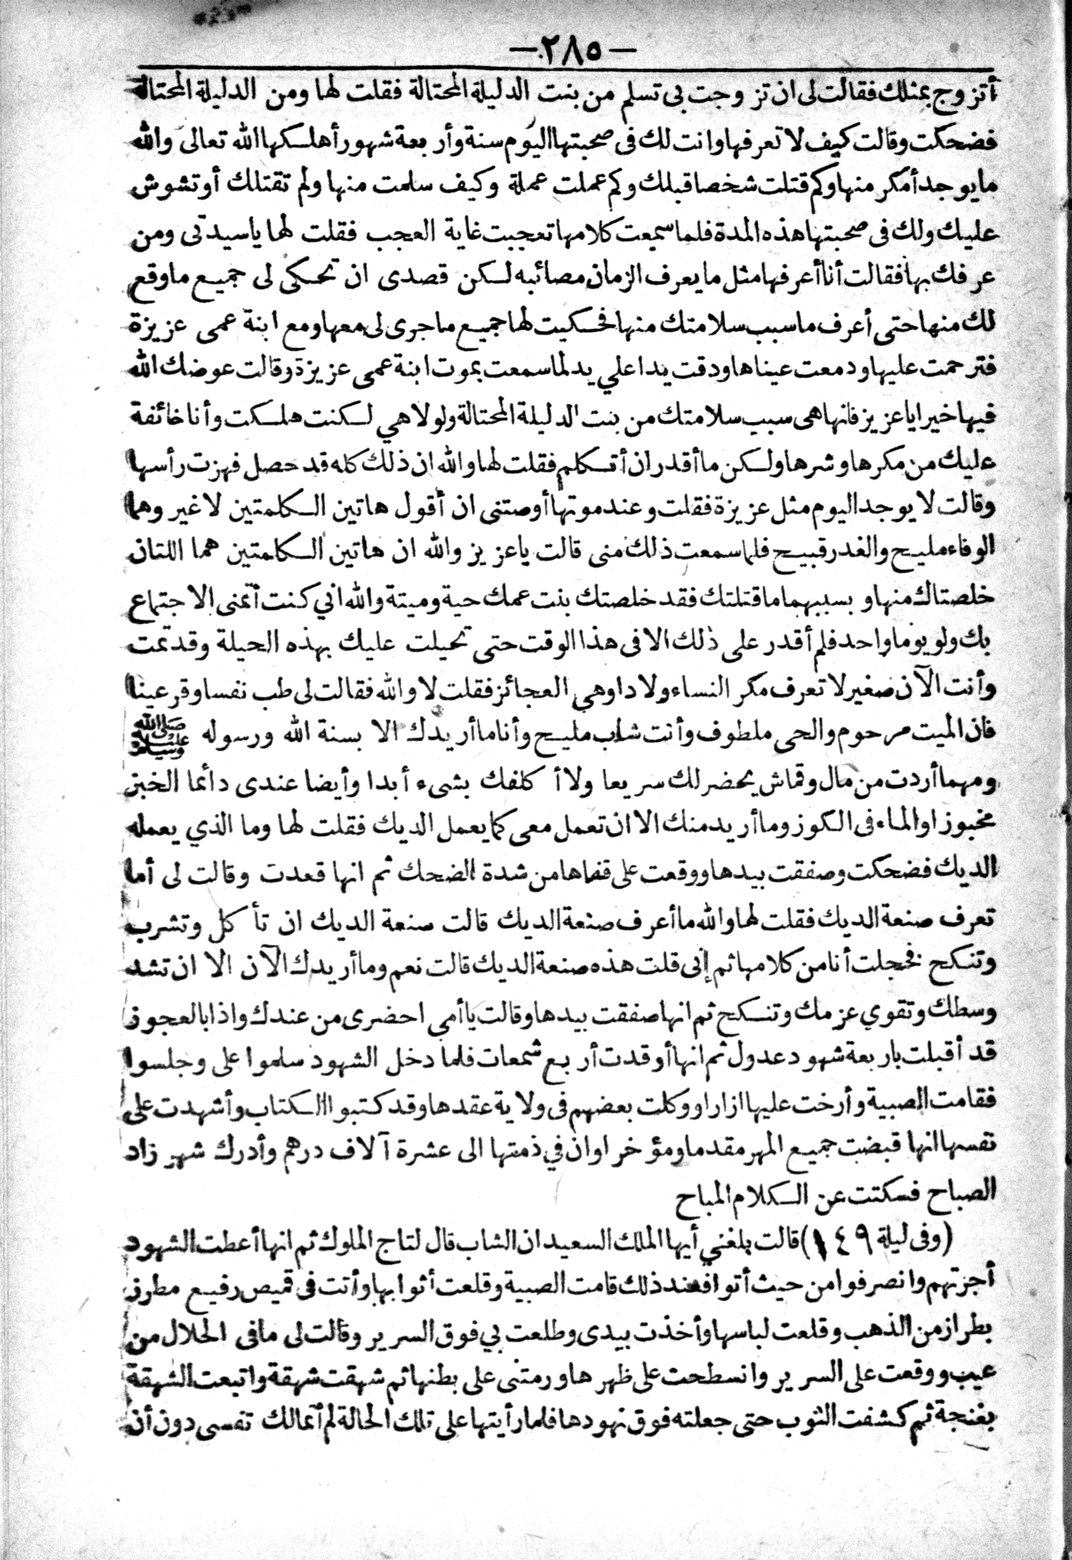 —٢٨٥—
أتزوج بمثلك فقالت لى ان تزوجت بى تسلم من بنت الدليلة المحتالة فقلت لها ومن الدليلة المحتالة
فضحكت وقالت كيف لا تعرفها وانت لك فى صحبتها اليوم سنة وأربعة شهور أهلكها الله تعالى والله
ما يوجد أمكر منها وكم قتلت شخصا قبلك وكم عملت عملة وكيف سلمت منها ولم تقتلك أو تشوش
عليك ولك فى صحبتها هذه المدة فلما سمعت كلامها تعجبت غاية العجب فقلت لها ياسيدتى ومن
عرفك بها فقالت أنا أعرفها مثل ما يعرف الزمان مصائبه لكن قصدى ان تحكى لى جميع ما وقع
لك منها حتى أعرف ما سبب سلامتك منها فحكيت لها جميع ما جرى لى معها ومع ابنة عمى عزيزة
فترحمت عليها ودمعت عيناها ودقت يدا علي يد لما سمعت بموت ابنة عمى عزيزة وقالت عوضك الله
فيها خيرا يا عزيز فانها هى سبب سلامتك من بنت الدليلة المحتالة ولولا هي لكنت هلكت وأنا خائفة
عليك من مكرها وشرها ولكن ما أقدر ان أتكلم فقلت لها والله ان ذلك كله قد حصل فهزت رأسها
وقالت لا يوجد اليوم مثل عزيزة فقلت وعند موتها أوصتنى ان أقول هاتين الكلمتين لا غير وهما
الوفاء مليح والغدر قبيح فلما سمعت ذلك منى قالت يا عزيز والله ان هاتين الكلمتين هما اللتان
خلصتاك منها وبسببهما ما قتلتك فقد خلصتك بنت عمك حية وميتة والله اني كنت أتمنى الاجتماع
بك ولو يوما واحد فلم أقدر على ذلك الا فى هذا الوقت حتى تحيلت عليك بهذه الحيلة وقد تمت
وأنت الآن صغير لا تعرف مكر النساء ولا دواهي العجائز فقلت لا والله فقالت لى طب نفسا وقر عينا
فان الميت مرحوم والحى ملطوف وأنت شاب مليح وأنا ما أريدك الا بسنة الله ورسوله ﷺ
ومهما أردت من مال وقماش يحضر لك سريعا ولا أكلفك بشىء أبدا وأيضا عندى دائما الخبز
مخبوز او الماء فى الكوز وما أريد منك الا ان تعمل معى كما يعمل الديك فقلت لها وما الذي يعمله
الديك فضحكت وصفقت بيدها ووقعت على قفاها من شدة الضحك ثم انها قعدت وقالت لى أما
تعرف صنعة الديك فقلت لها والله ما أعرف صنعة الديك قالت صنعة الديك ان تأكل وتشرب
وتنكح فخجلت أنا من كلامها ثم إنى قلت هذه صنعة الديك قالت نعم وما أريدك الآن الا ان تشد
وسطك وتقوي عزمك وتنكح ثم انها صفقت بيدها وقالت يا أمي احضرى من عندك واذا بالعجوز
قد أقبلت باربعة شهود عدول ثم انها أوقدت أربع شمعات فلما دخل الشهود سلموا على وجلسوا
فقامت الصبية وأرخت عليها ازارا ووكلت بعضهم فى ولاية عقدها وقد كتبوا الكتاب وأشهدت على
نفسها انها قبضت جميع المهر مقدما ومؤخرا وان في ذمتها الى عشرة آلاف درهم وأدرك شهر زاد
الصباح فسكتت عن الكلام المباح
(وفى ليلة ١٤٩) قالت بلغني أيها الملك السعيد ان الشاب قال لتاج الملوك ثم انها أعطت الشهود
أجرتهم وانصرفوا من حيث أتوا فعند ذلك قامت الصبية وقلعت أثوابها وأتت فى قميص رفيع مطرز
بطراز من الذهب وقلعت لباسها وأخذت بيدى وطلعت بي فوق السرير وقالت لى مافى الحلال من
عيب ووقعت على السرير وانسطحت على ظهرها ورمتنى على بطنها ثم شهقت شهقة واتبعت الشهقة
بغنجة ثم كشفت الثوب حتى جعلته فوق نهودها فلما رأيتها على تلك الحالة لم أتمالك نفسى دون أن